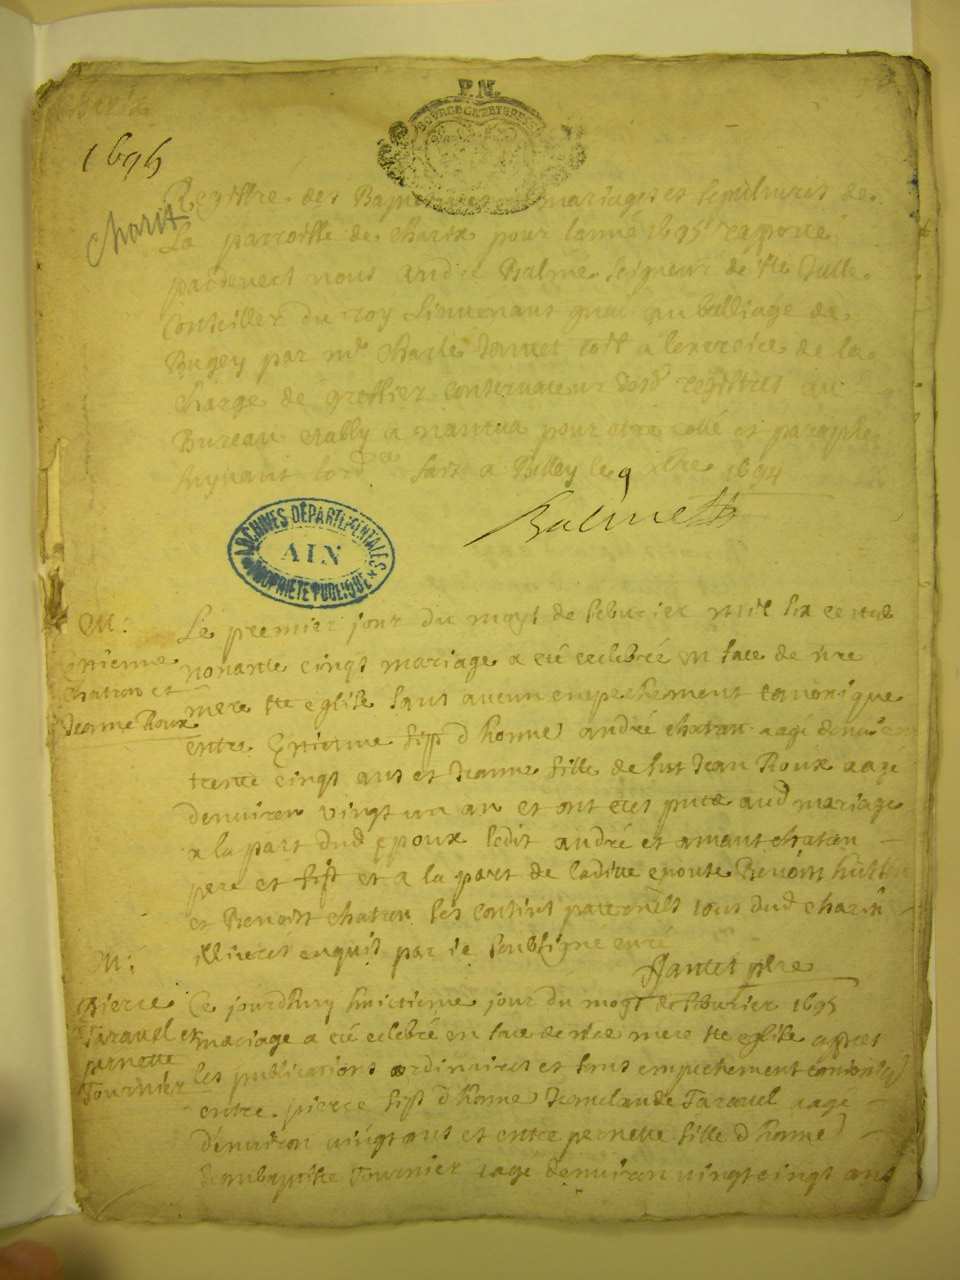 P.N.
1695
Charix
Registre des Baptesmes mariages et sepultures de
la parroisse de charix pour lanné 1695
pardevant nous andré Balme seigneur de ste Julle
Conseiller du roy Lieutenant gnal au balliage de
Bugey par mr charle Jannet à lexercice de la
charge de greffier conservateur desd registres au
Bureau estably a nantua pour estre cotté et paraphé
fait a Belley le 9 xbre 1694
Balme
ARCHINES DÉPARTEMENTALES
AIN
PROPRIETE PUBLIQUE
M:
Estienne
chatron et
Jeanne Roux
Le premier jour du moys de feburier mil six cent
nonante cingt mariage a eté celebré en face de nre
mere ste eglise sans aucun empeschement canonique
entre Estienne fils d honne andré chatron aagé denuiron
trente cingt ans et Jeanne fille de fut Jean Roux aage
denuiron vingt un an et ont etes pnts aud mariage
a la part dud epoux ledit andré et amant chatron
pere et fils et a la part de ladite epouse Benoist
et Benoist chatron ses tous dud charix
illiteres enquis par je soubsigné curé
ptre
M:
Pierre
Taravel et
pernette
Tournier
Ce jourdhuy huictieme jour du moys de feburier 1695
mariage a eté celebré en face de nre mere ste eglise apres
les publications ordinaires et sans empechement canoniq
entre pierre fils d honne Jeanclaude Taravel aage
denuiron vingt ans et entre pernette fille d honne
Jeanbaptiste Tournier aage denuiron vingt cingt ans